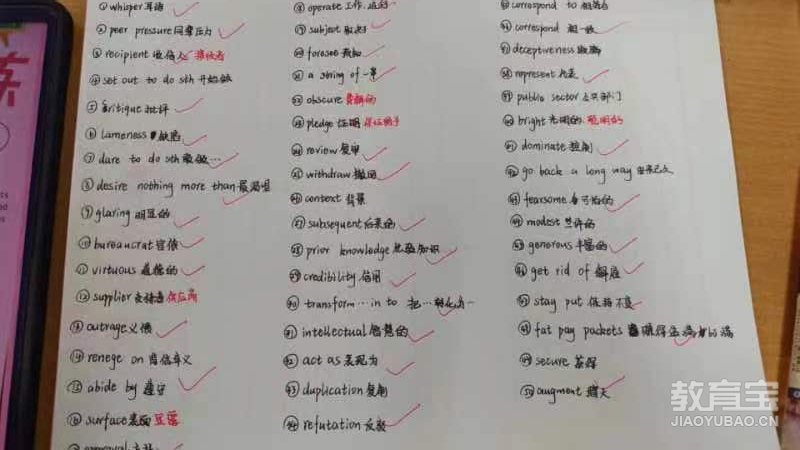 ① whisper 耳语
② peer pressure 同辈压力
③ recipient 收信人 接收者
④ set out to do sth 开始做
⑤ critique 批评
⑥ lameness 缺陷
⑦ dare to do sth 敢做…
⑧ desire nothing more than 最渴望
⑨ glaring 明显的
⑩ bureaucrat 官僚
⑪ virtuous 道德的
⑫ supplier 供应商
⑬ outrage 义愤
⑭ renege on 背信弃义
⑮ abide by 遵守
⑯ surface 表面
operate 工作
subject
foresee 预知
a string of 一串
obscure
pledge 证明
review 复审
withdraw 撤回
context 背景
subsequent 后来的
prior knowledge 知识
credibility 信用
transform … in to 把…转化为…
intellectual 智慧的
act as 表现为
duplication 复制
refutation 反驳
correspond to 相当于
correspond 相一致
deceptiveness 欺骗
represent 代表
public sector 公共部门
bright 光明的 聪明的
dominate 控制
go back a long way 由来已久
fearsome 可怕的
modest 些许的
generous 丰富的
get rid of 解雇
stay put 保持不变
fat pay packets
secure 获得
augment 增大
教育宝
JIAOYUBAO.CN